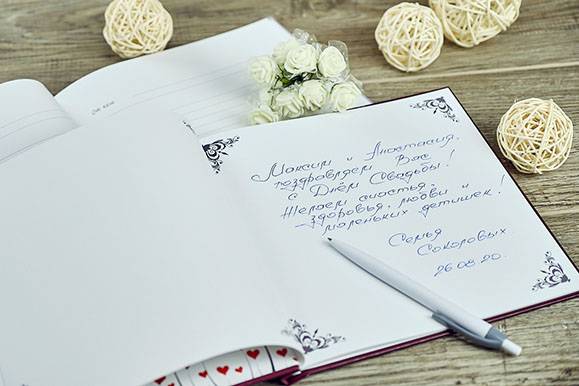 Максим и Анастасия,
поздравляем Вас
с Днём Свадьбы!
Желаем счастья,
здоровья, любви и
маленьких детишек!
Семья
Соколовых.
26.08.20.